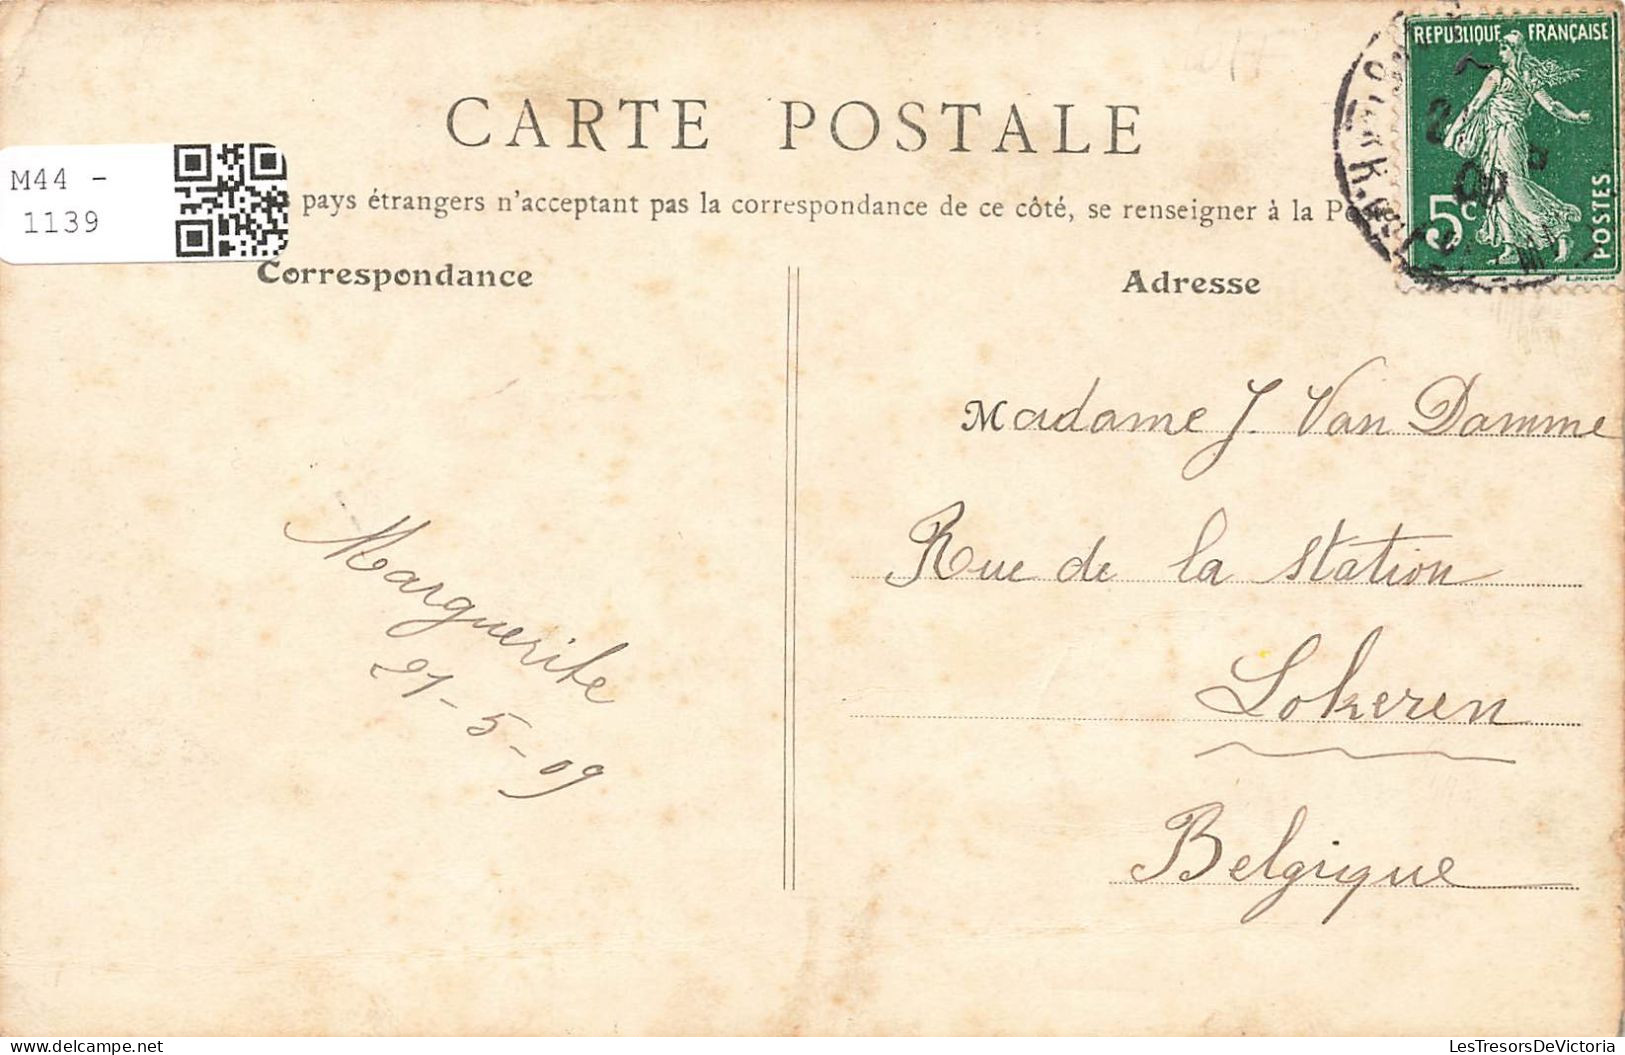 CARTE POSTALE
M44 -
1139
pays étrangers n'acceptant pas la correspondance de ce côté, se renseigner à la
Correspondance
Adresse
REPUBLIQUE FRANÇAISE
5c
POSTES
Madame J. Van Damme
Rue de la Station
Lokeren
Belgique
Marguerite
21-5-09
LesTresorsDeVictoria